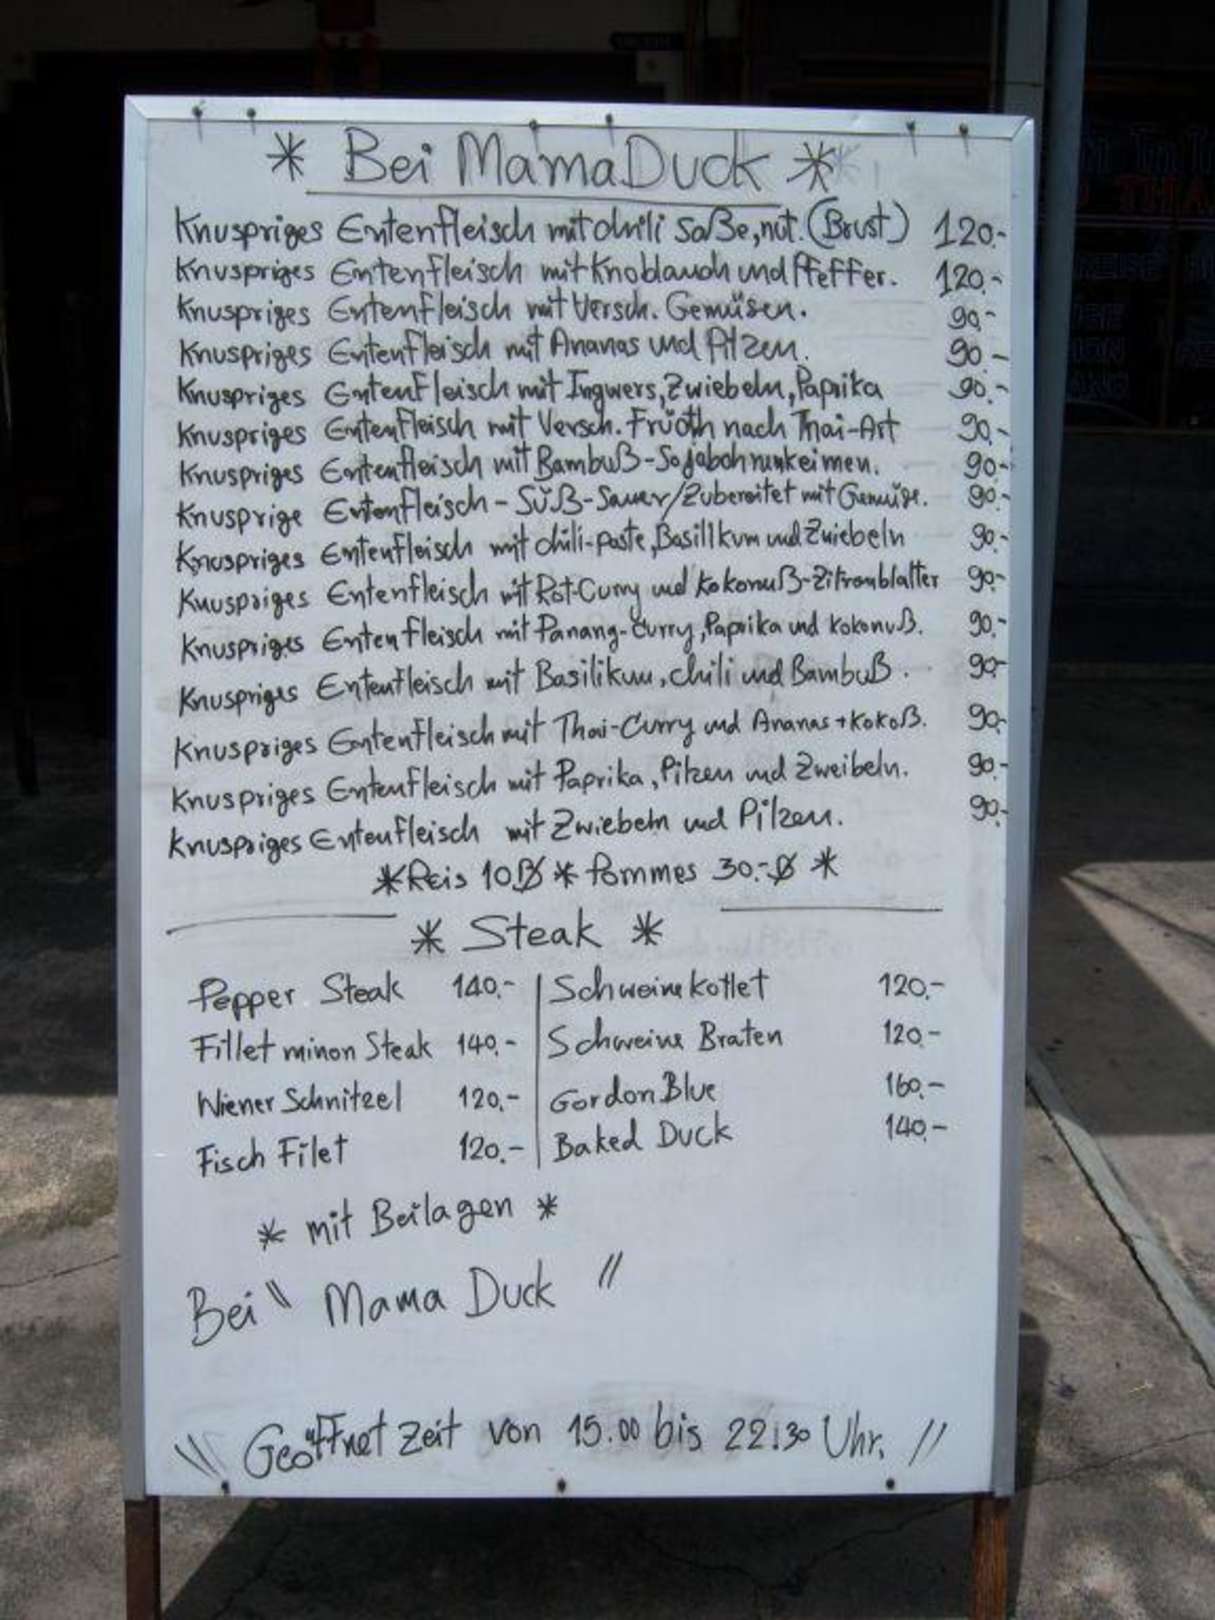 * Bei MamaDuck *
Knuspriges Entenfleisch mit chili Soße, nut. (Brust) 120.-
Knuspriges Entenfleisch mit Knoblauch und Pfeffer. 120.-
Knuspriges Entenfleisch mit Versch. Gemüsen. 90.-
Knuspriges Entenfleisch mit Ananas und Pilzen. 90.-
Knuspriges Entenfleisch mit Ingwers, Zwiebeln, Paprika 90.-
Knuspriges Entenfleisch mit Versch. Früöth nach Thai-Art 90.-
Knuspriges Entenfleisch mit Bambuß-Sojabohnunkeimen. 90.-
Knusprige Entenfleisch - Süß-Sauer/Zubereitet mit Gemüse. 90.-
Knuspriges Entenfleisch mit chili-paste, Basillkum und Zwiebeln 90.-
Knuspriges Entenfleisch mit Rot-Curry und Kokonuß-Zitronblatter 90.-
Knuspriges Entenfleisch mit Panang-Curry, Paprika und Kokonuß. 90.-
Knuspriges Entenfleisch mit Basilikum, chili und Bambuß. 90.-
Knuspriges Entenfleisch mit Thai-Curry und Ananas + Kokoß. 90.-
Knuspriges Entenfleisch mit Paprika, Pilzen und Zweibeln. 90.-
Knuspriges Entenfleisch mit Zwiebeln und Pilzen. 90.-
* Reis 10.฿ * Pommes 30.-฿ *
* Steak *
Pepper Steak 140.- Schweinekotlet 120.-
Fillet minon Steak 140.- Schweine Braten 120.-
Wiener Schnitzel 120.- Gordon Blue 160.-
Fisch Filet 120.- Baked Duck 140.-
* mit Beilagen *
Bei \\ Mama Duck //
\\ Geöffnet Zeit von 15.00 bis 22:30 Uhr. //